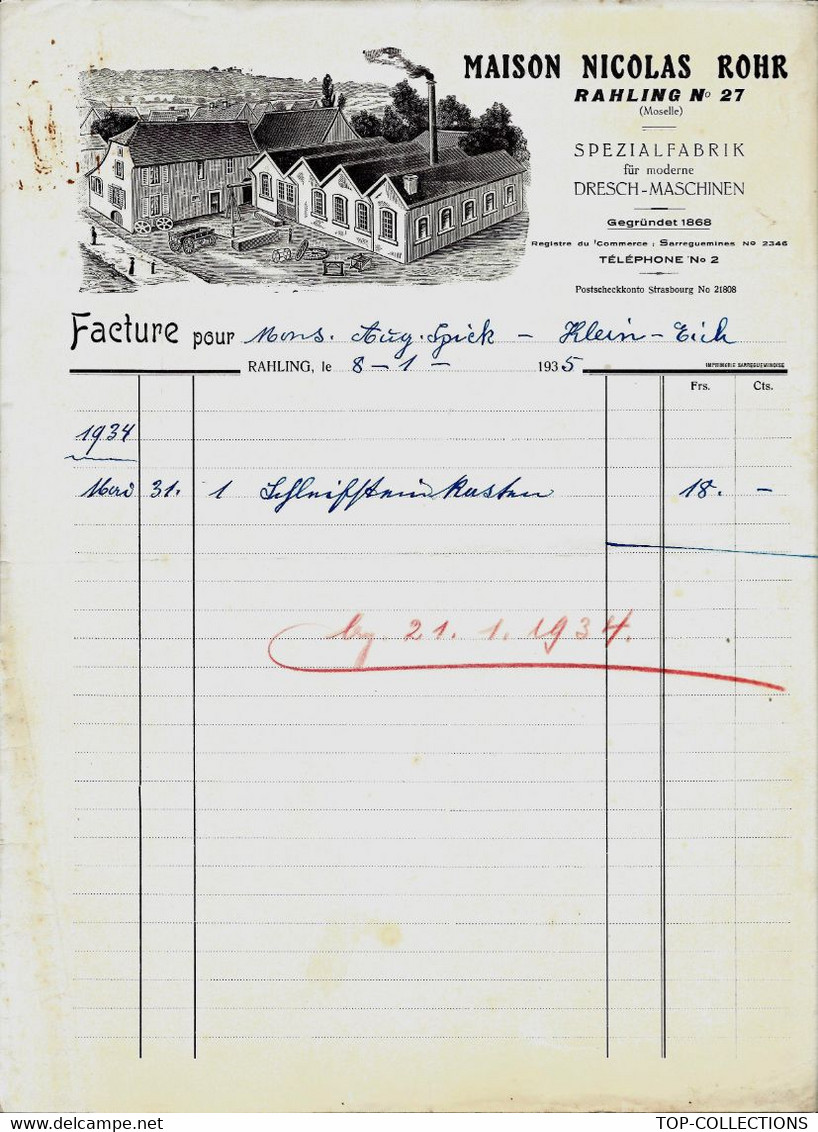 MAISON NICOLAS ROHR
RAHLING No 27
(Moselle)
SPEZIALFABRIK
für moderne
DRESCH-MASCHINEN
Gegründet 1868
Registre du Commerce : Sarreguemines No 2346
TÉLÉPHONE No 2
Postscheckkonto Strasbourg No 21808
Facture pour Mons. Aug. Spick - Klein-Eich
RAHLING, le 8-1- 1935
IMPRIMERIE SARREGUEMINOISE
Frs. Cts.
1934
31. 1 Schleifsteinkasten 18. -
21. 1. 1934.
TOP-COLLECTIONS